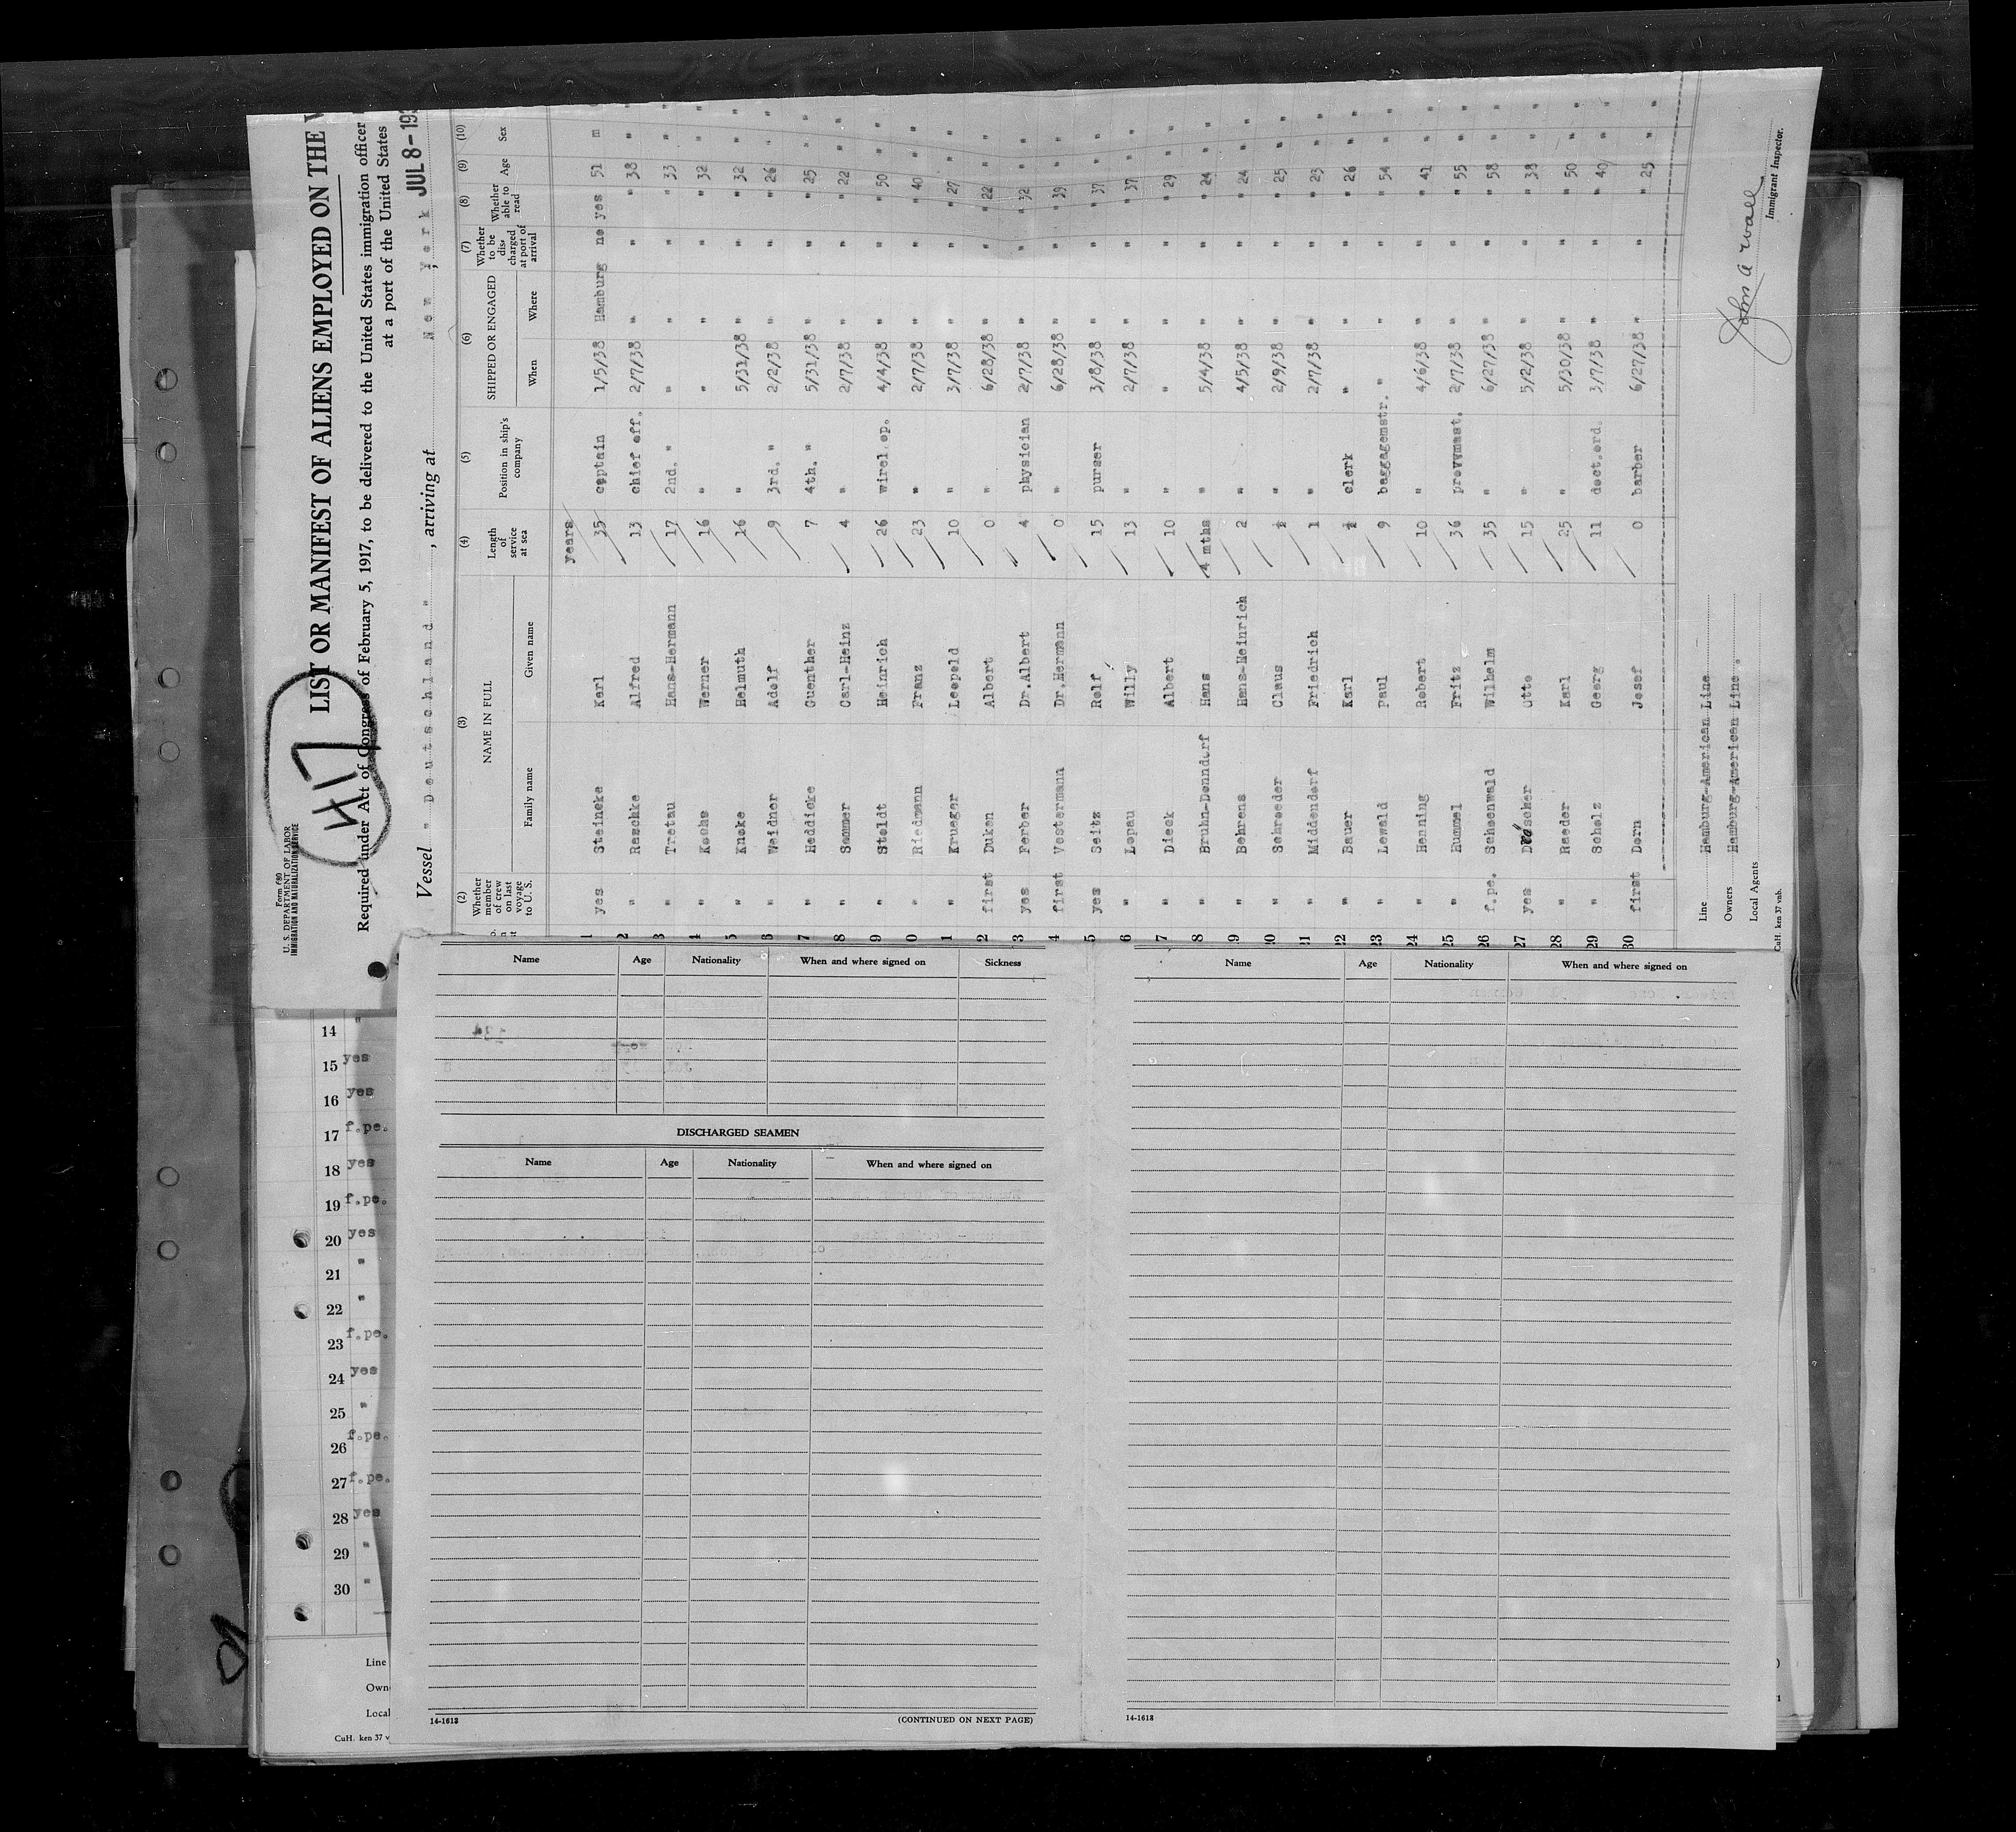 Form 680
U. S. DEPARTMENT OF LABOR
IMMIGRATION AND NATURALIZATION SERVICE
LIST OR MANIFEST OF ALIENS EMPLOYED ON THE
Required under Act of Congress of February 5, 1917, to be delivered to the United States immigration officer
at a port of the United States
Vessel " Deutschland " , arriving at New York , JUL 8-193
(2) (3) (4) (5) (6) (7) (8) (9) (10)
Whether member of crew on last voyage to U. S. NAME IN FULL Family name Given name Length of service at sea Position in ship's company SHIPPED OR ENGAGED When Where Whether to be discharged at port of arrival Whether able to read Age Sex
years
1 yes Steincke Karl 35 captain 1/5/38 Hamburg no yes 51 m
2 " Raschke Alfred 13 chief off. 2/7/38 " " " 38 "
3 " Tretau Hans-Hermann 17 2nd. " " " " " 33 "
4 " Kochs Werner 16 " " " " " 32 "
5 " Kneke Helmuth 16 " 5/31/38 " " " 32 "
6 " Weidner Adolf 9 3rd. " 2/2/38 " " " 26 "
7 " Heddicke Guenther 7 4th. " 5/31/38 " " " 25 "
8 " Sommer Carl-Heinz 4 " 2/7/38 " " " 22 "
9 " Stoldt Heinrich 26 wirel.op. 4/4/38 " " " 50 "
0 " Riedmann Franz 23 " 2/7/38 " " " 40 "
1 " Krueger Leopold 10 " 3/7/38 " " " 27 "
2 first Duken Albert 0 " 6/28/38 " " " 22 "
3 yes Ferber Dr.Albert 4 physician 2/7/38 " " " 32 "
4 first Vestermann Dr.Hermann 0 " 6/28/38 " " " 39 "
5 yes Seitz Rolf 15 purser 3/8/38 " " " 37 "
6 " Lopau Willy 13 " 2/7/38 " " " 37 "
7 " Dieck Albert 10 " " " " " 29 "
8 " Bruhn-Denndorf Hans 4 mths " 5/4/38 " " " 24 "
9 " Behrens Hans-Heinrich 2 " 4/5/38 " " " 24 "
20 " Schroeder Claus ½ " 2/9/38 " " " 25 "
21 " Middendorf Friedrich 1 " 2/7/38 " " " 23 "
22 " Bauer Karl ½ clerk " " " " 26 "
23 " Lewald Paul 9 baggagemstr. " " " " 54 "
24 " Henning Robert 10 " 4/6/38 " " " 41 "
25 " Hummel Fritz 36 provvmast. 2/7/38 " " " 55 "
26 f.pe. Schoenwald Wilhelm 35 " 6/27/38 " " " 58 "
27 yes Dräscher Otto 15 " 5/2/38 " " " 38 "
28 " Raeder Karl 25 " 5/30/38 " " " 50 "
29 " Scholz Georg 11 doct.ord. 3/7/38 " " " 40 "
30 first Dorn Josef 0 barber 6/27/38 " " " 25 "
Line Hamburg-American Line
Owners Hamburg-American Line.
Local Agents
CuH. ken 37 vnb.
John A Wall
Immigrant Inspector.
Name Age Nationality When and where signed on Sickness
DISCHARGED SEAMEN
Name Age Nationality When and where signed on
14-1618 (CONTINUED ON NEXT PAGE)
Name Age Nationality When and where signed on
14-1618
14 "
15 yes
16 yes
17 f.pe.
18 yes
19 f.pe.
20 yes
21 "
22 "
23 f.pe.
24 yes
25 "
26 f.pe.
27 f.pe.
28 yes
29 "
30 "
Line
Own
Local
CuH. ken 37 v